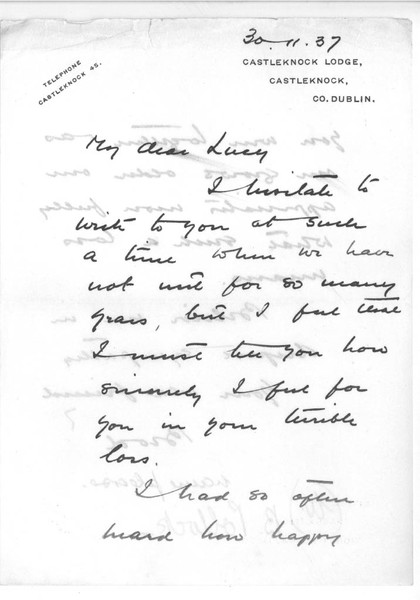 30.11.37
TELEPHONE
CASTLEKNOCK 45.
CASTLEKNOCK LODGE,
CASTLEKNOCK,
CO. DUBLIN.
My dear Lucy
I hesitate to
write to you at such
a time when we have
not met for so many
years, but I feel that
I must tell you how
sincerely I feel for
you in your terrible
loss.
I had so often
heard how happy